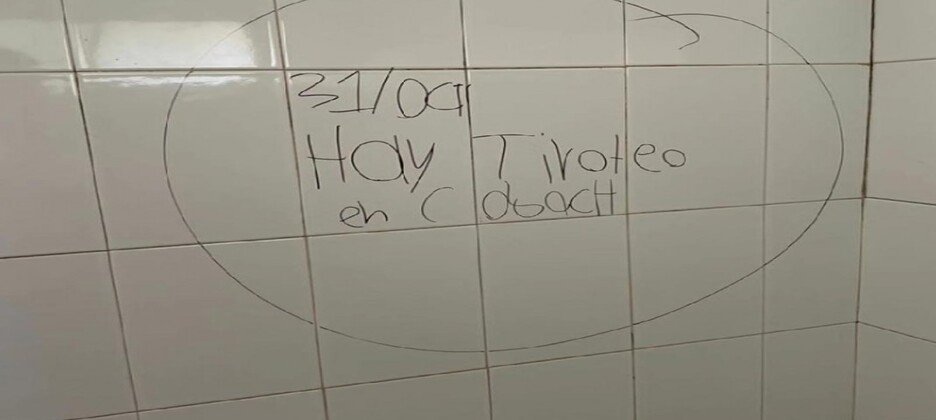 31/Oct
Hay Tiroteo
en Cobach